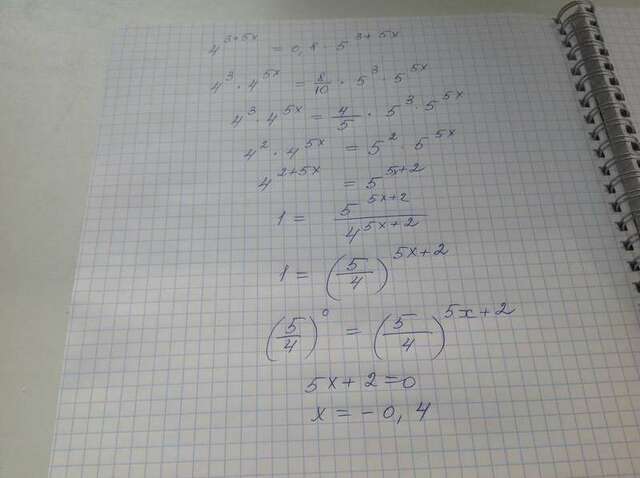 4^{3+5x} = 0,8 · 5^{3+5x}
4^3 · 4^{5x} = \frac{8}{10} · 5^3 · 5^{5x}
4^3 · 4^{5x} = \frac{4}{5} · 5^3 · 5^{5x}
4^2 · 4^{5x} = 5^2 · 5^{5x}
4^{2+5x} = 5^{5x+2}
1 = \frac{5^{5x+2}}{4^{5x+2}}
1 = (\frac{5}{4})^{5x+2}
(\frac{5}{4})^0 = (\frac{5}{4})^{5x+2}
5x+2=0
x = -0,4